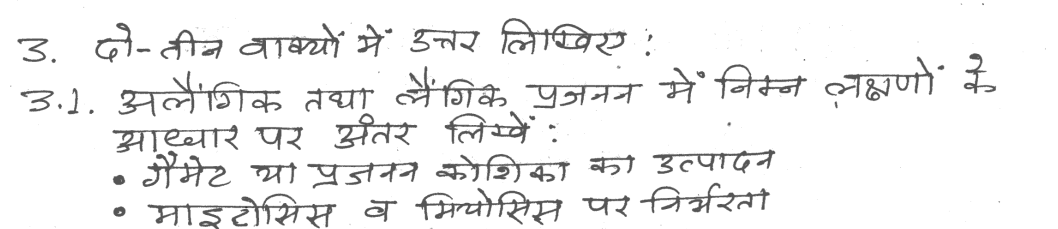 3. दो-तीन वाक्यों में उत्तर लिखिए :
3.1. अलैंगिक तथा लैंगिक प्रजनन में निम्न लक्षणों के
आधार पर अंतर लिखें :
• गैमेट या प्रजनन कोशिका का उत्पादन
• माइटोसिस व मियोसिस पर निर्भरता